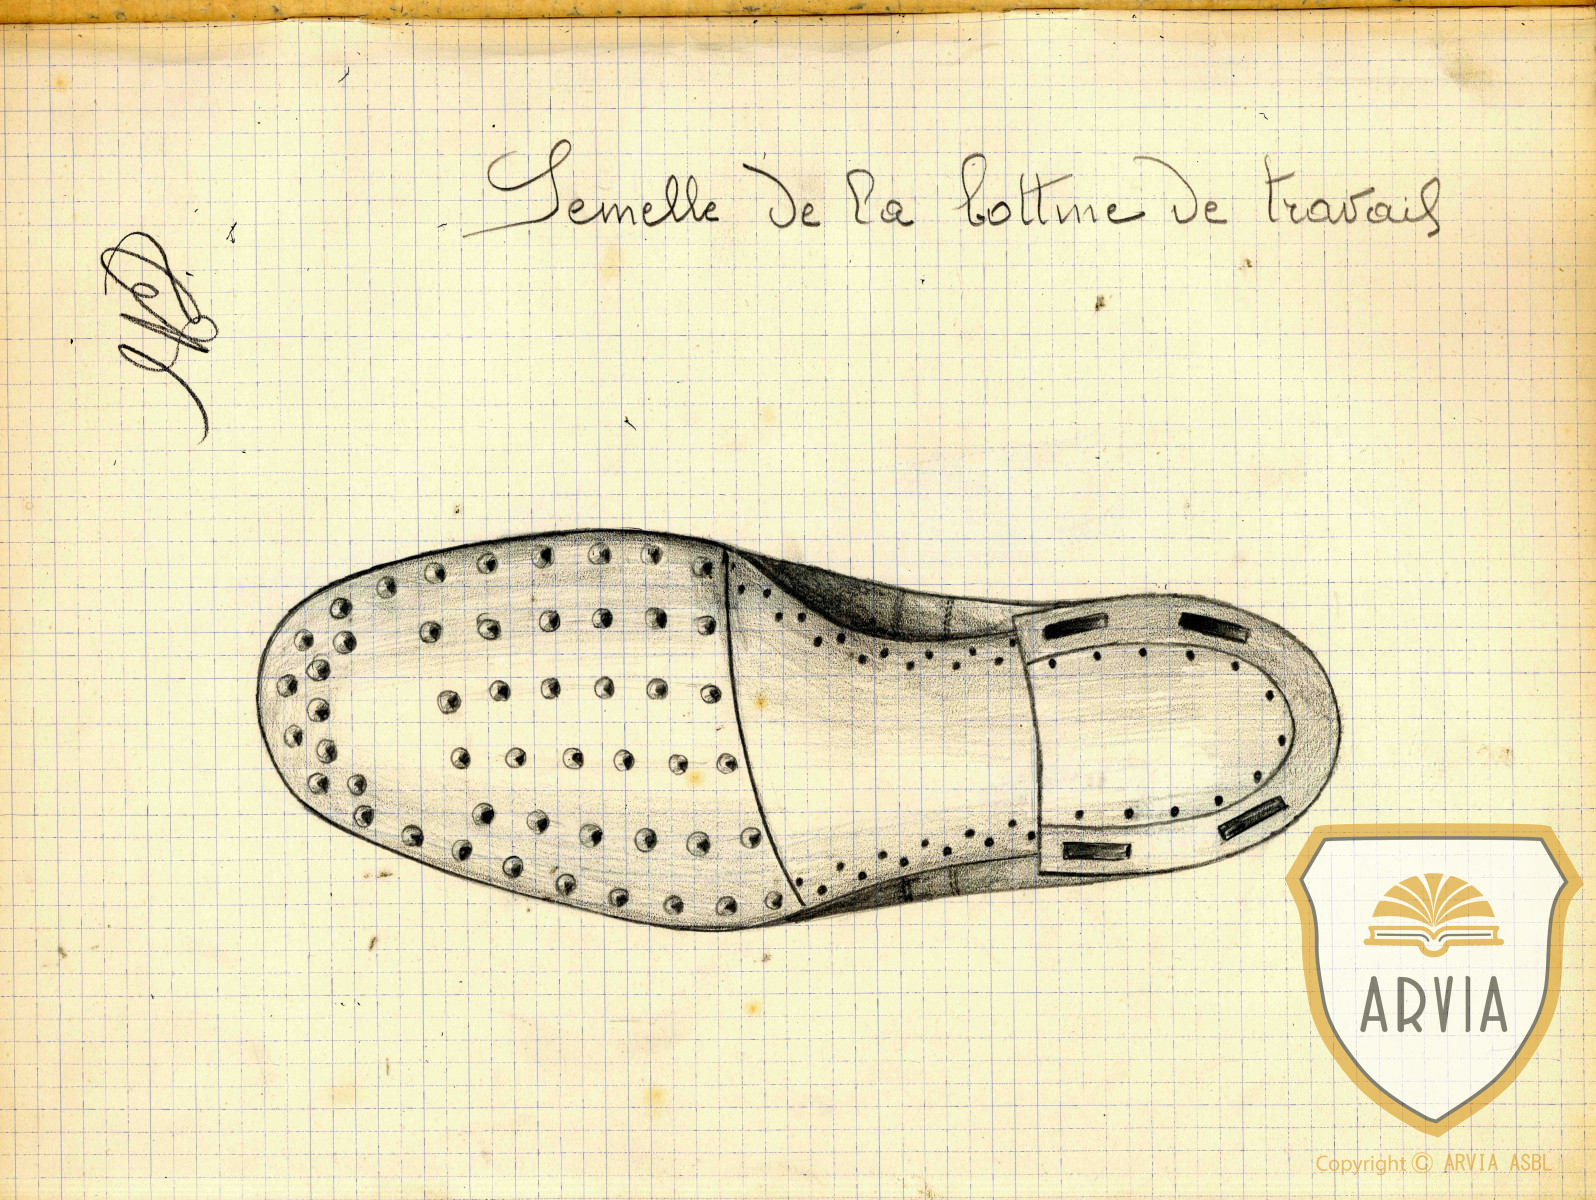 Semelle de la bottine de travail
ARVIA
Copyright © ARVIA ASBL